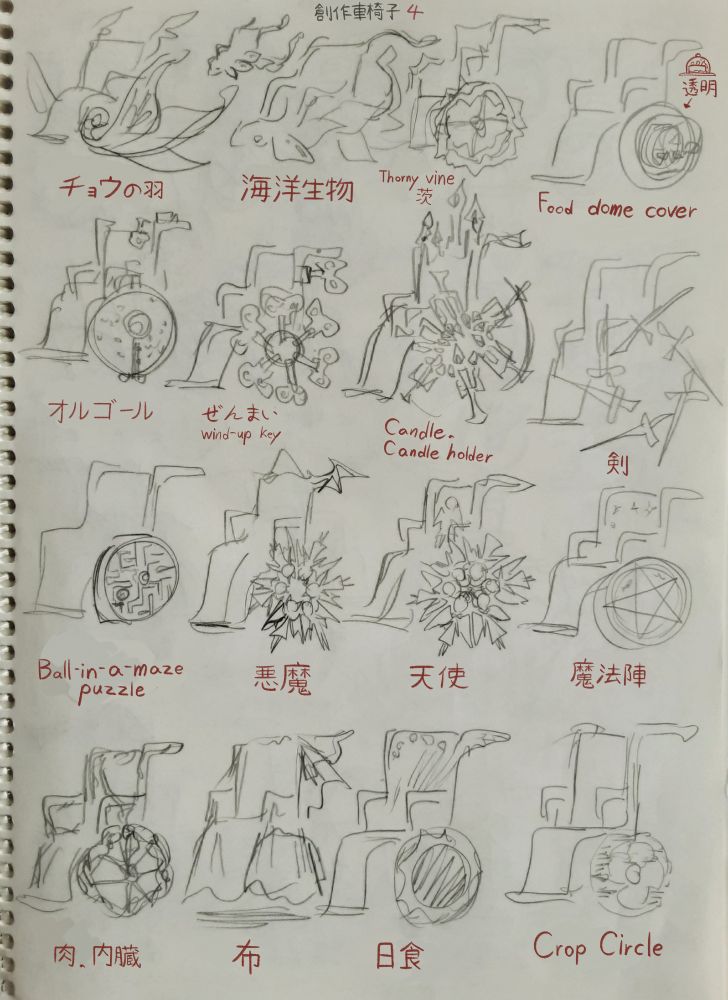 創作車椅子 4
透明
チョウの羽
海洋生物
Thorny vine
茨
Food dome cover
オルゴール
ぜんまい
wind-up key
Candle.
Candle holder
剣
Ball-in-a-maze
puzzle
悪魔
天使
魔法陣
肉、内臓
布
日食
Crop Circle